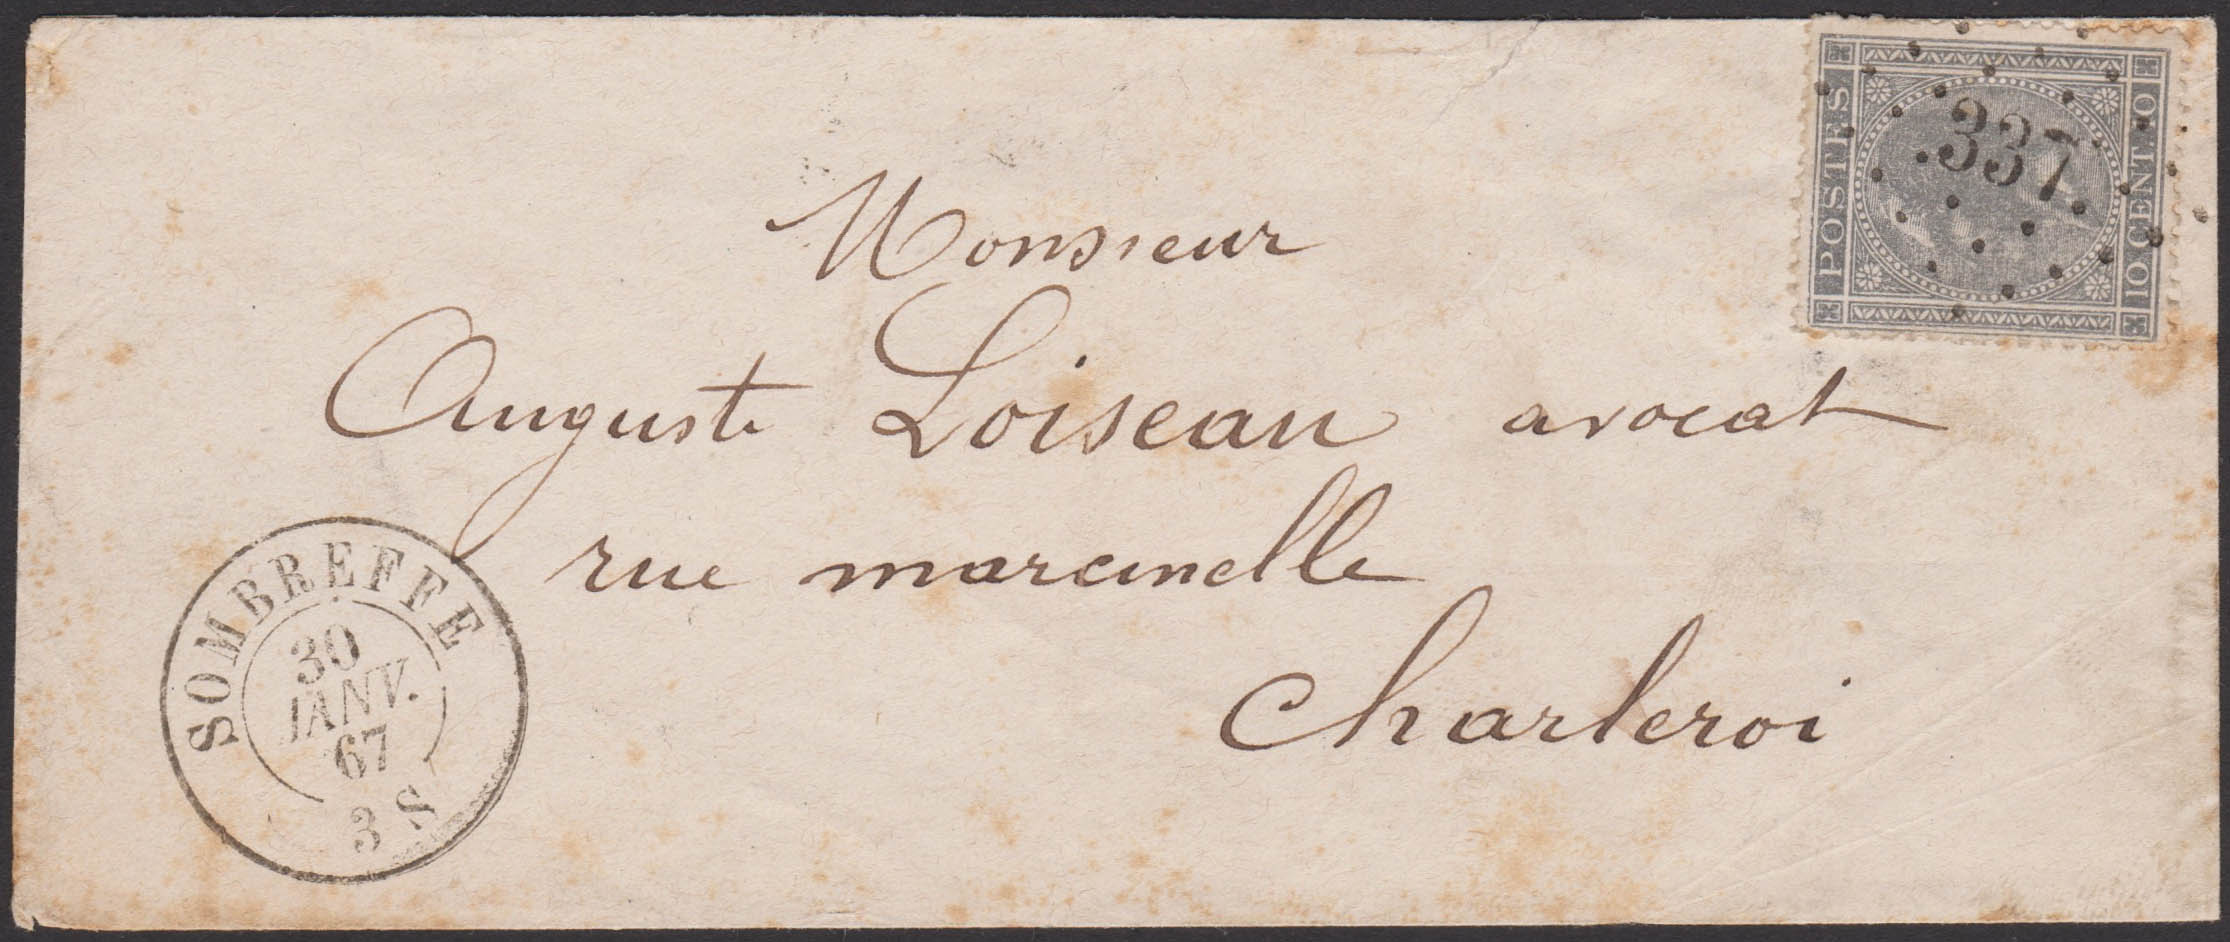 POSTES
10 CENT. 10
337
Monsieur
Auguste Loiseau avocat
rue marcinelle
Charleroi
SOMBREFFE
30
JANV.
67
3 S